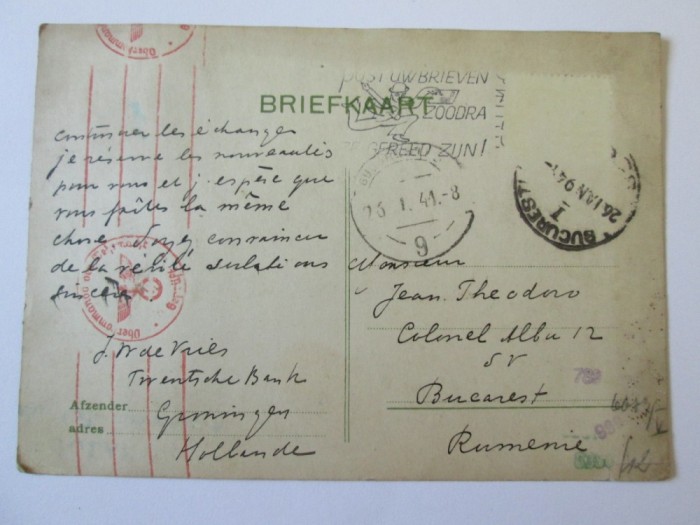 BRIEFKAART
POST UW BRIEVEN
ZOODRA
GEREED ZIJN!
les échanges
je réserve les nouveautés
pour vous et j'espère que
vous faites la même
chose Soyez convaincu
de la salutations
J. W de Vries
Twentsche Bank
Afzender Groningen
adres Hollande
1. 41.-8
9
BUCUREST
I
26 IAN 941
Monsieur
Jean Theodoro
Colonel Alba 12
Bucarest
Rumenie
789